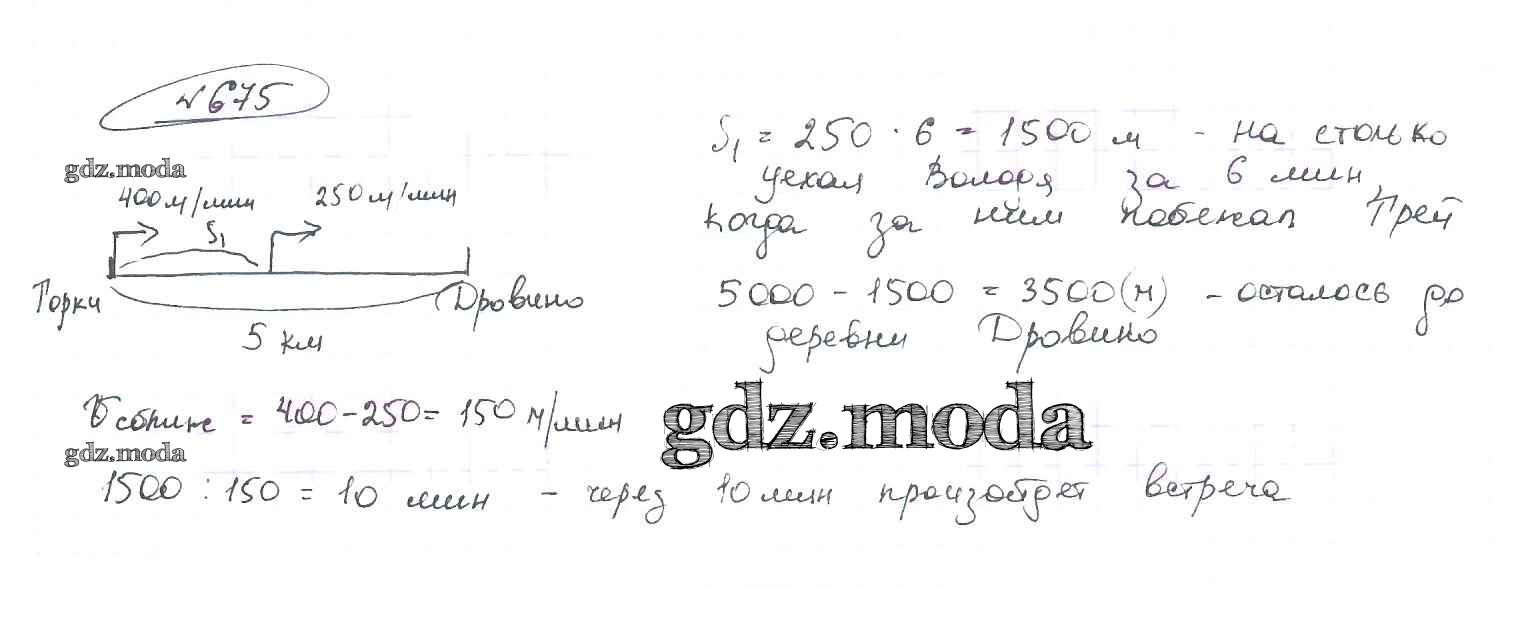 №675
gdz.moda
400м/мин 250м/мин
S₁
Горки Дровино
5 км
S₁ = 250 · 6 = 1500 м - на столько
уехал Володя за 6 мин,
когда за ним побежал Грей
5000 - 1500 = 3500(м) - осталось до
деревни Дровино
gdz.moda
Vсближ = 400-250= 150 м/мин
gdz.moda
1500 : 150 = 10 мин - через 10 мин произойдет встреча